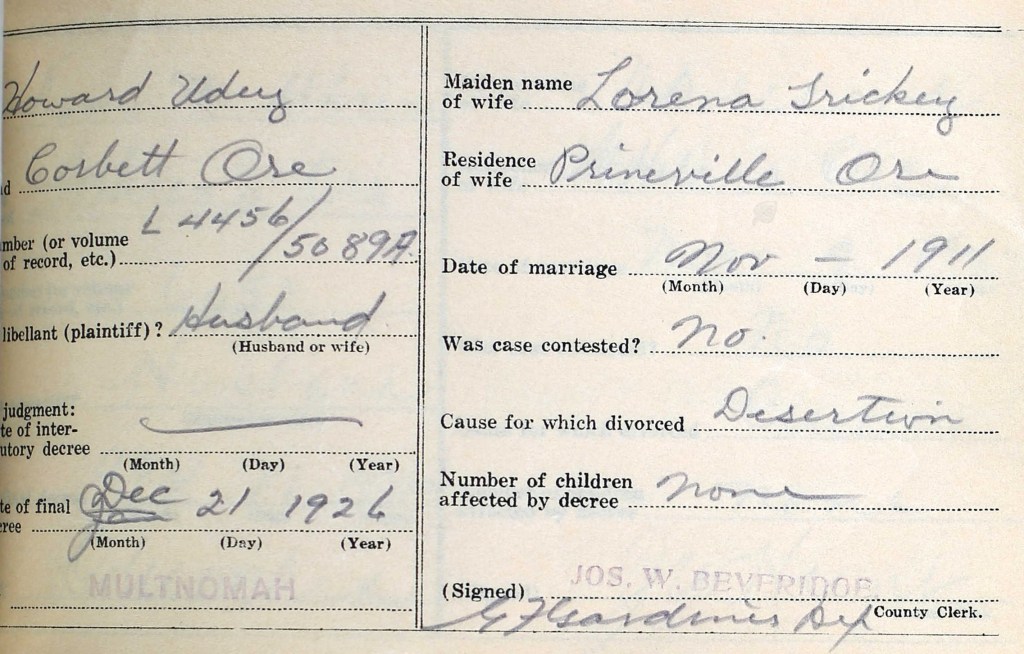 Howard Udey
Corbett Ore
L 4456/
50 89A
mber (or volume
of record, etc.)
libellant (plaintiff)? Husband
(Husband or wife)
judgment:
te of inter-
utory decree
(Month) (Day) (Year)
te of final
cree
Dec 21 1926
(Month) (Day) (Year)
MULTNOMAH
Maiden name
of wife Lorena Trickey
Residence
of wife Prineville Ore
Date of marriage Nov — 1911
(Month) (Day) (Year)
Was case contested? No.
Cause for which divorced Desertion
Number of children
affected by decree none
JOS. W. BEVERIDGE
(Signed)
County Clerk.